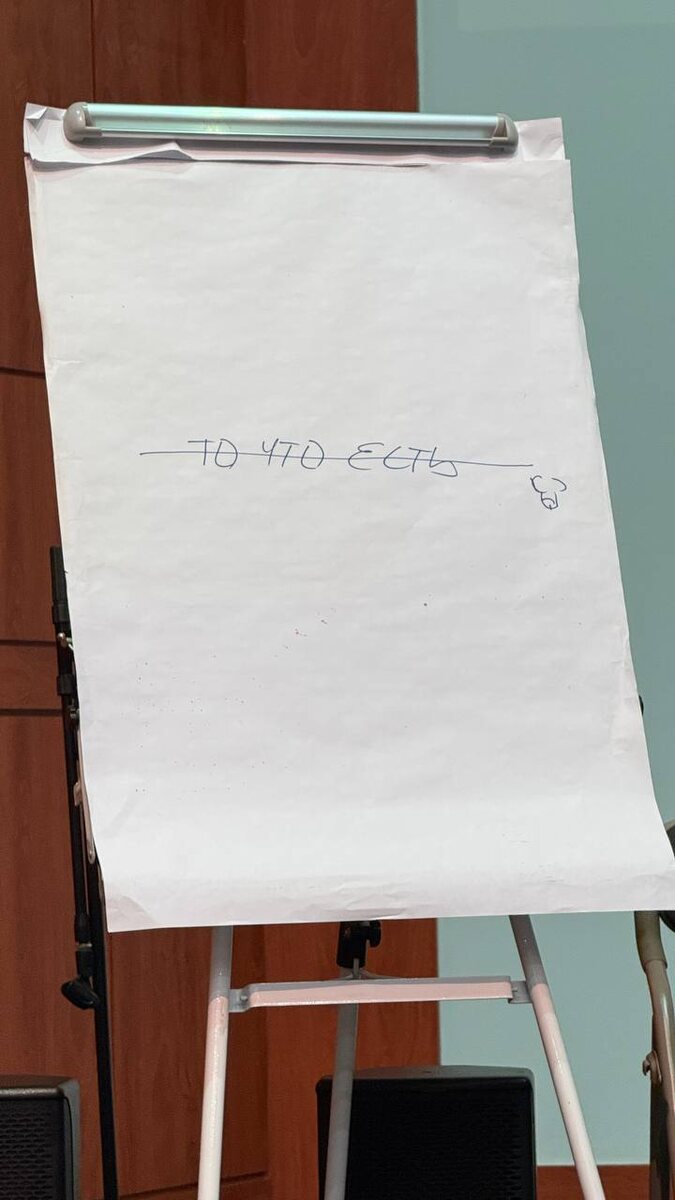 ТО ЧТО ЕСТЬ